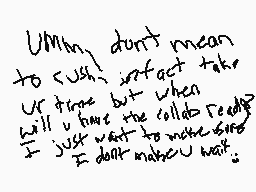 Umm, don't mean
to rush, infact take
ur time but when
will u have the collab ready?
I just want to make sure
I dont make u wait :